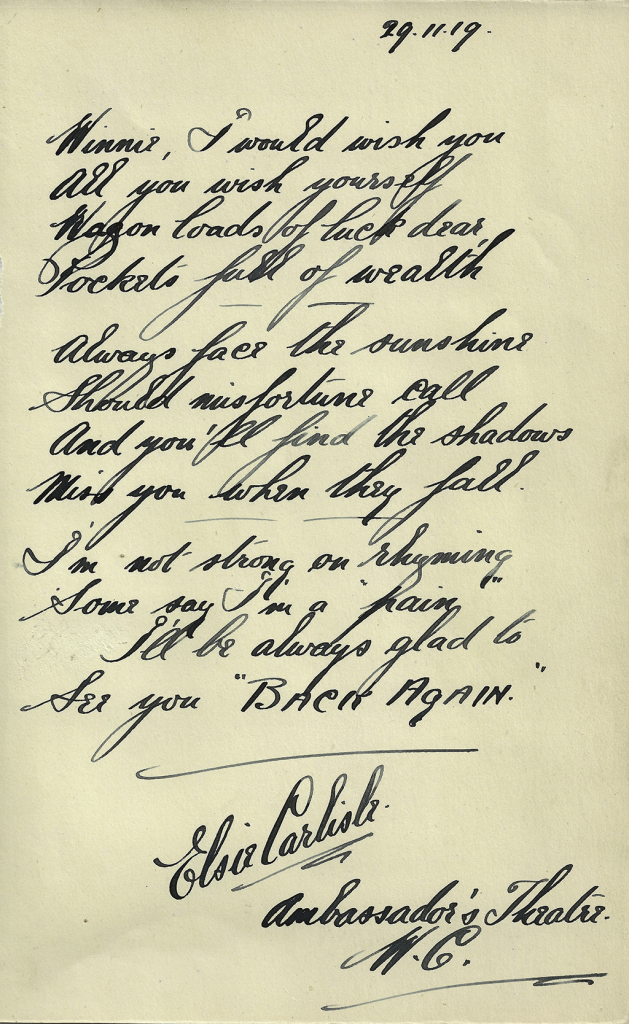 29.11.19.
Winnie, I would wish you
All you wish yourself
Wagon loads of luck dear,
Pockets full of wealth
Always face the sunshine
Should misfortune call
And you'll find the shadows
Miss you when they fall.
I'm not strong on rhyming
Some say I'm a "pain"
I'll be always glad to
See you "BACK AGAIN."
Elsie Carlisle.
Ambassador's Theatre.
W.C.